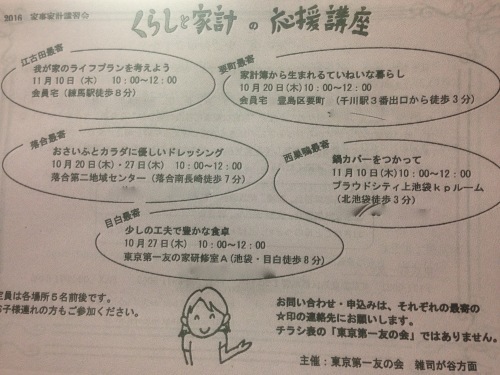 2016 家事家計講習会
くらしと家計の応援講座
江古田最寄
我が家のライフプランを考えよう
11月10日(木) 10:00~12:00
会員宅(練馬駅徒歩8分)
要町最寄
家計簿から生まれるていねいな暮らし
10月20日(木)10:00~12:00
会員宅 豊島区要町(千川駅3番出口から徒歩3分)
落合最寄
おさいふとカラダに優しいドレッシング
10月20日(木)・27日(木) 10:00~12:00
落合第二地域センター(落合南長崎徒歩7分)
西巣鴨最寄
鍋カバーをつかって
11月10日(木)10:00~12:00
プラウドシティ上池袋kpルーム
(北池袋徒歩3分)
目白最寄
少しの工夫で豊かな食卓
10月27日(木) 10:00~12:00
東京第一友の家研修室A(池袋・目白徒歩8分)
定員は各場所5名前後です。
お子様連れの方もご参加ください。
お問い合わせ・申込みは、それぞれの最寄の
☆印の連絡先にお願いします。
チラシ表の「東京第一友の会」ではありません。
主催:東京第一友の会 雑司が谷方面